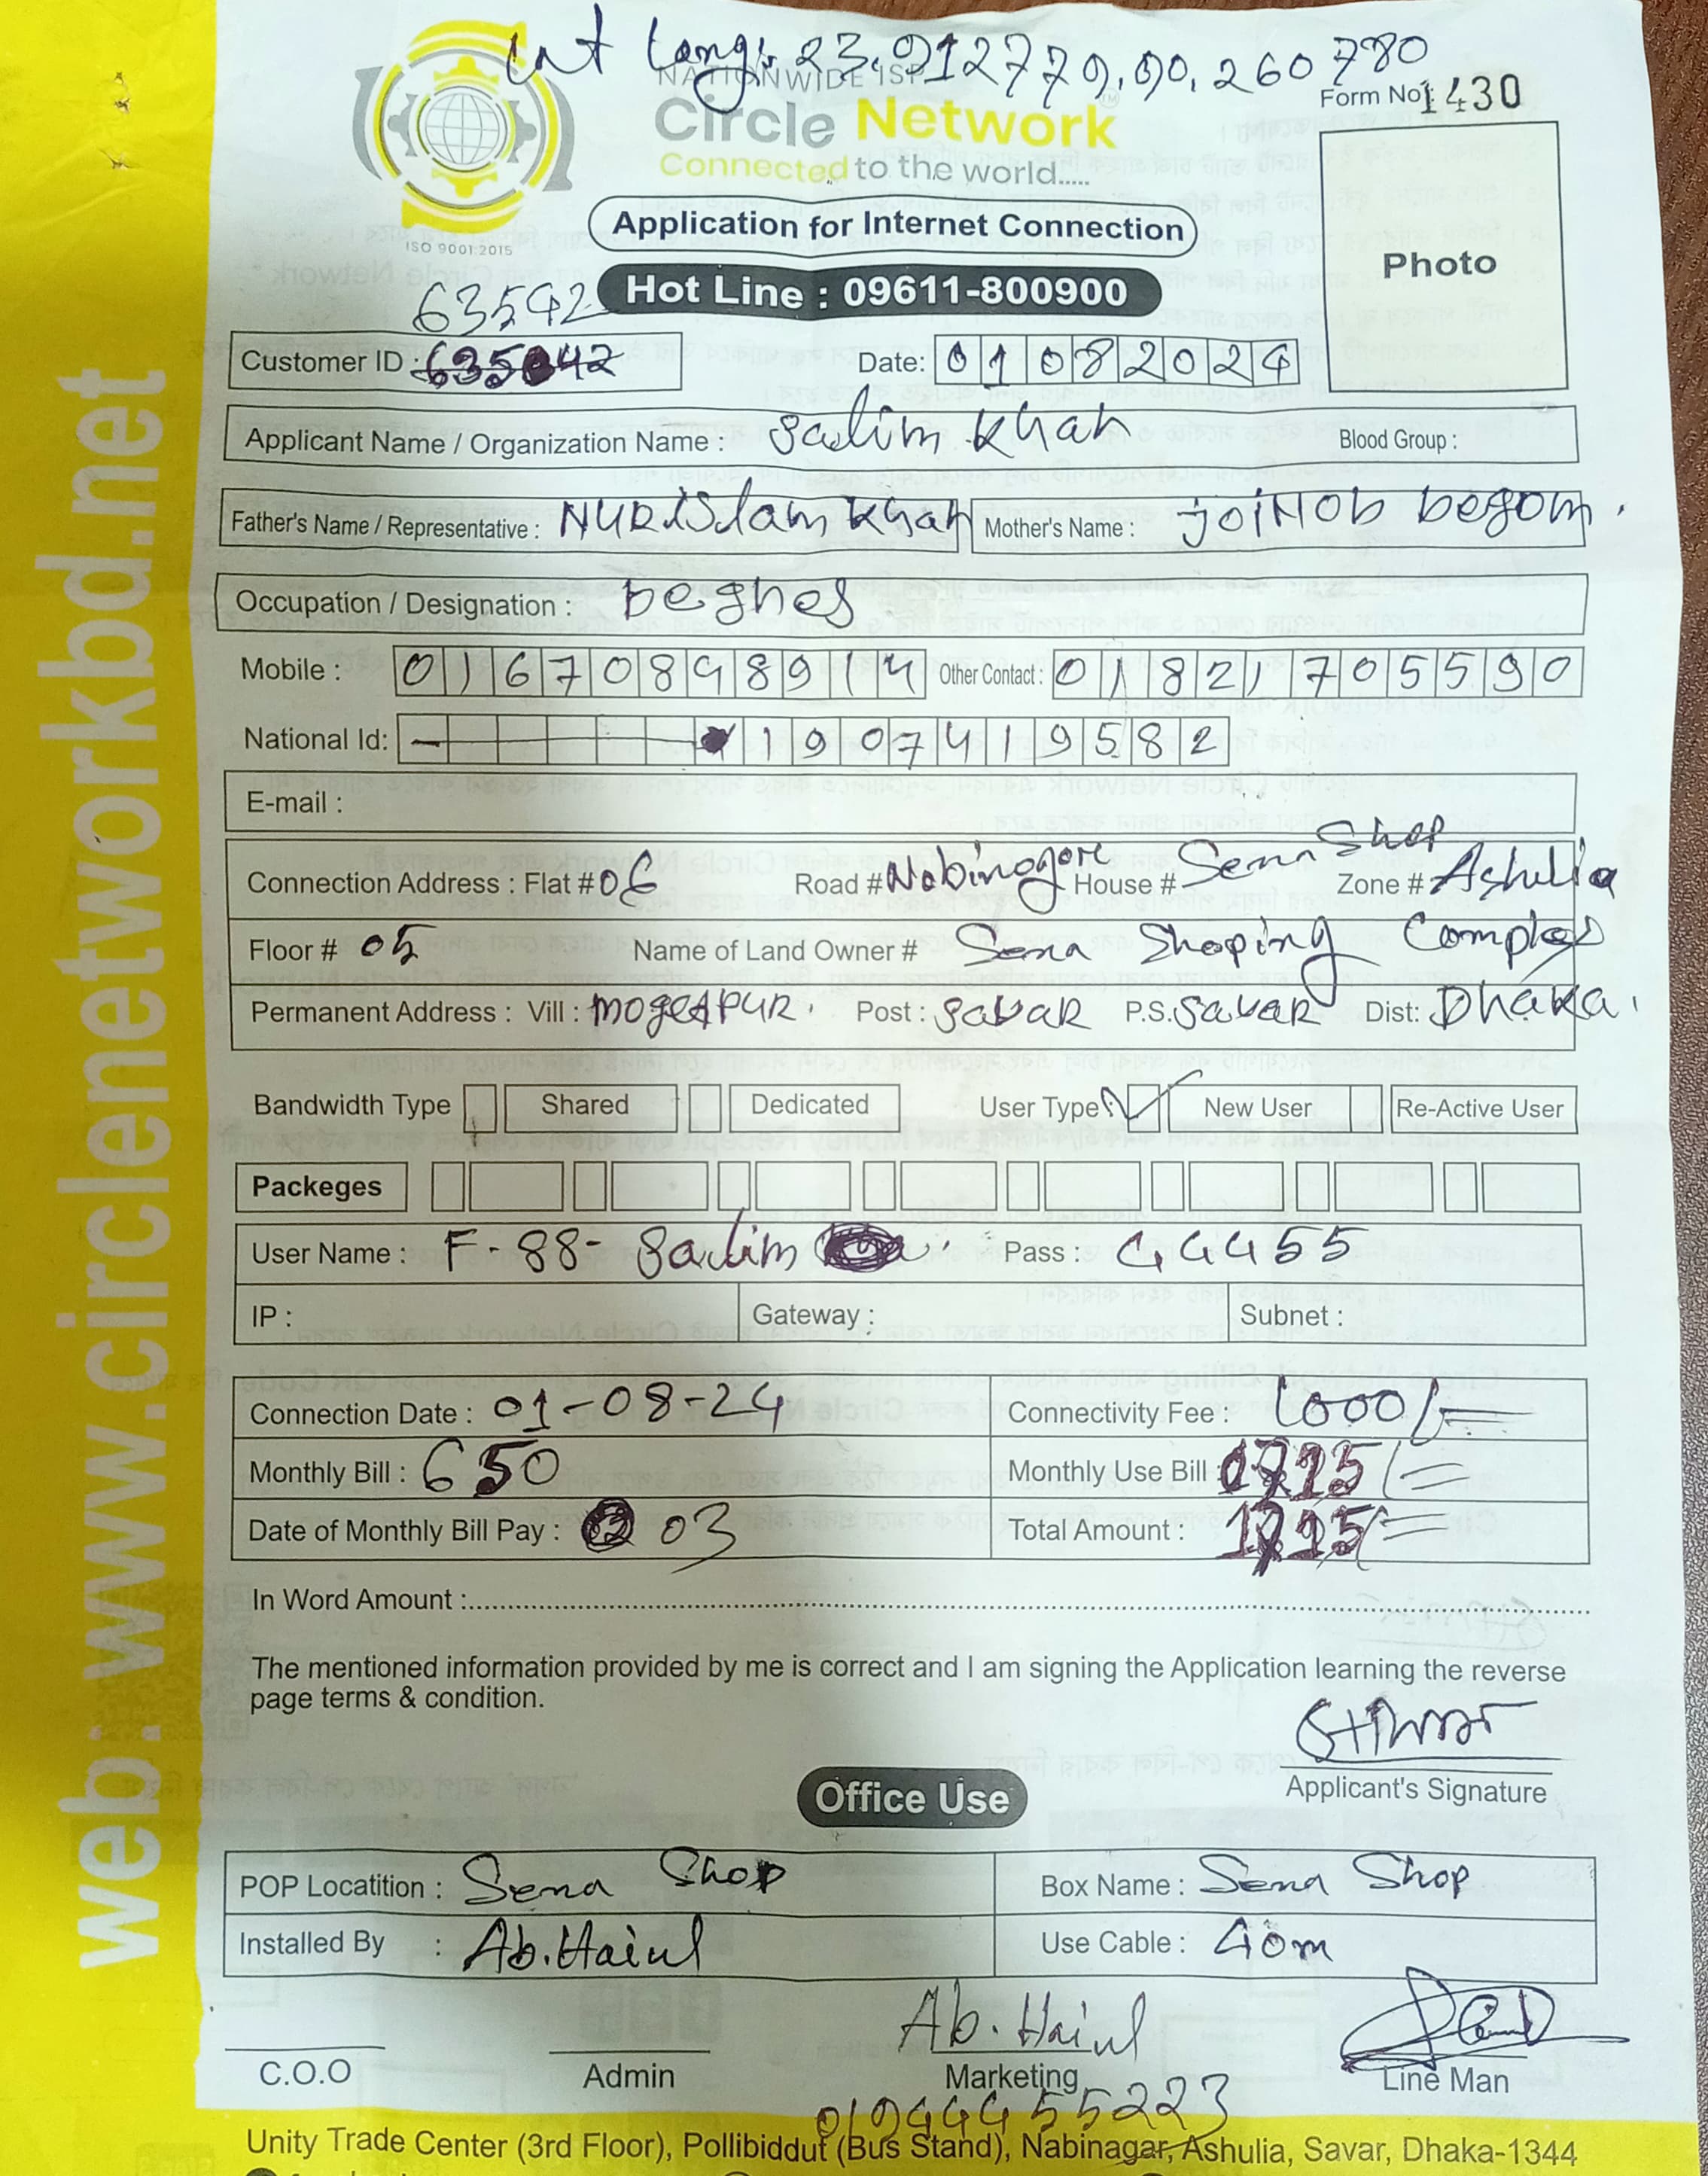 Lat Long: 23.912779,90.260780
NATIONWIDE ISP
Form No: 1430
Circle Network™
Connected to the world.....
ISO 9001:2015
Application for Internet Connection
Photo
Hot Line : 09611-800900
63542
Customer ID : Date: 01082024
Applicant Name / Organization Name : Salim Khan Blood Group :
Father's Name / Representative : NURISlam Khan Mother's Name : joiNob begom.
Occupation / Designation : beghes
Mobile : 01670898914 Other Contact : 01821705590
National Id: 1907419582
E-mail :
Connection Address : Flat # 06 Road # Nobinogore House # Sena Shop Zone # Ashulia
Floor # 05 Name of Land Owner # Sena Shoping Complex
Permanent Address : Vill : Post : SavaR P.S. SavaR Dist: Dhaka.
Bandwidth Type Shared Dedicated User Type New User Re-Active User
Packeges
User Name : F-88-Salim Pass : 44455
IP : Gateway : Subnet :
Connection Date : 01-08-24 Connectivity Fee : 1000/=
Monthly Bill : 650 Monthly Use Bill :
Date of Monthly Bill Pay : 03 Total Amount :
In Word Amount :
The mentioned information provided by me is correct and I am signing the Application learning the reverse
page terms & condition.
Applicant's Signature
Office Use
POP Locatition : Sena Shop Box Name : Sena Shop
Installed By : Ab.Hainl Use Cable : 40m
Ab. Hainl
C.O.O Admin Marketing Line Man
01944455223
Unity Trade Center (3rd Floor), Pollibiddut (Bus Stand), Nabinagar, Ashulia, Savar, Dhaka-1344
web: www.circlenetworkbd.net